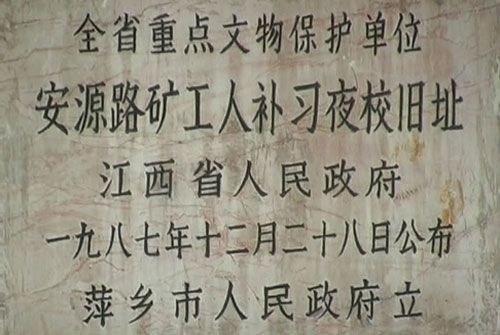 全省重点文物保护单位
安源路矿工人补习夜校旧址
江西省人民政府
一九八七年十二月二十八日公布
萍乡市人民政府立